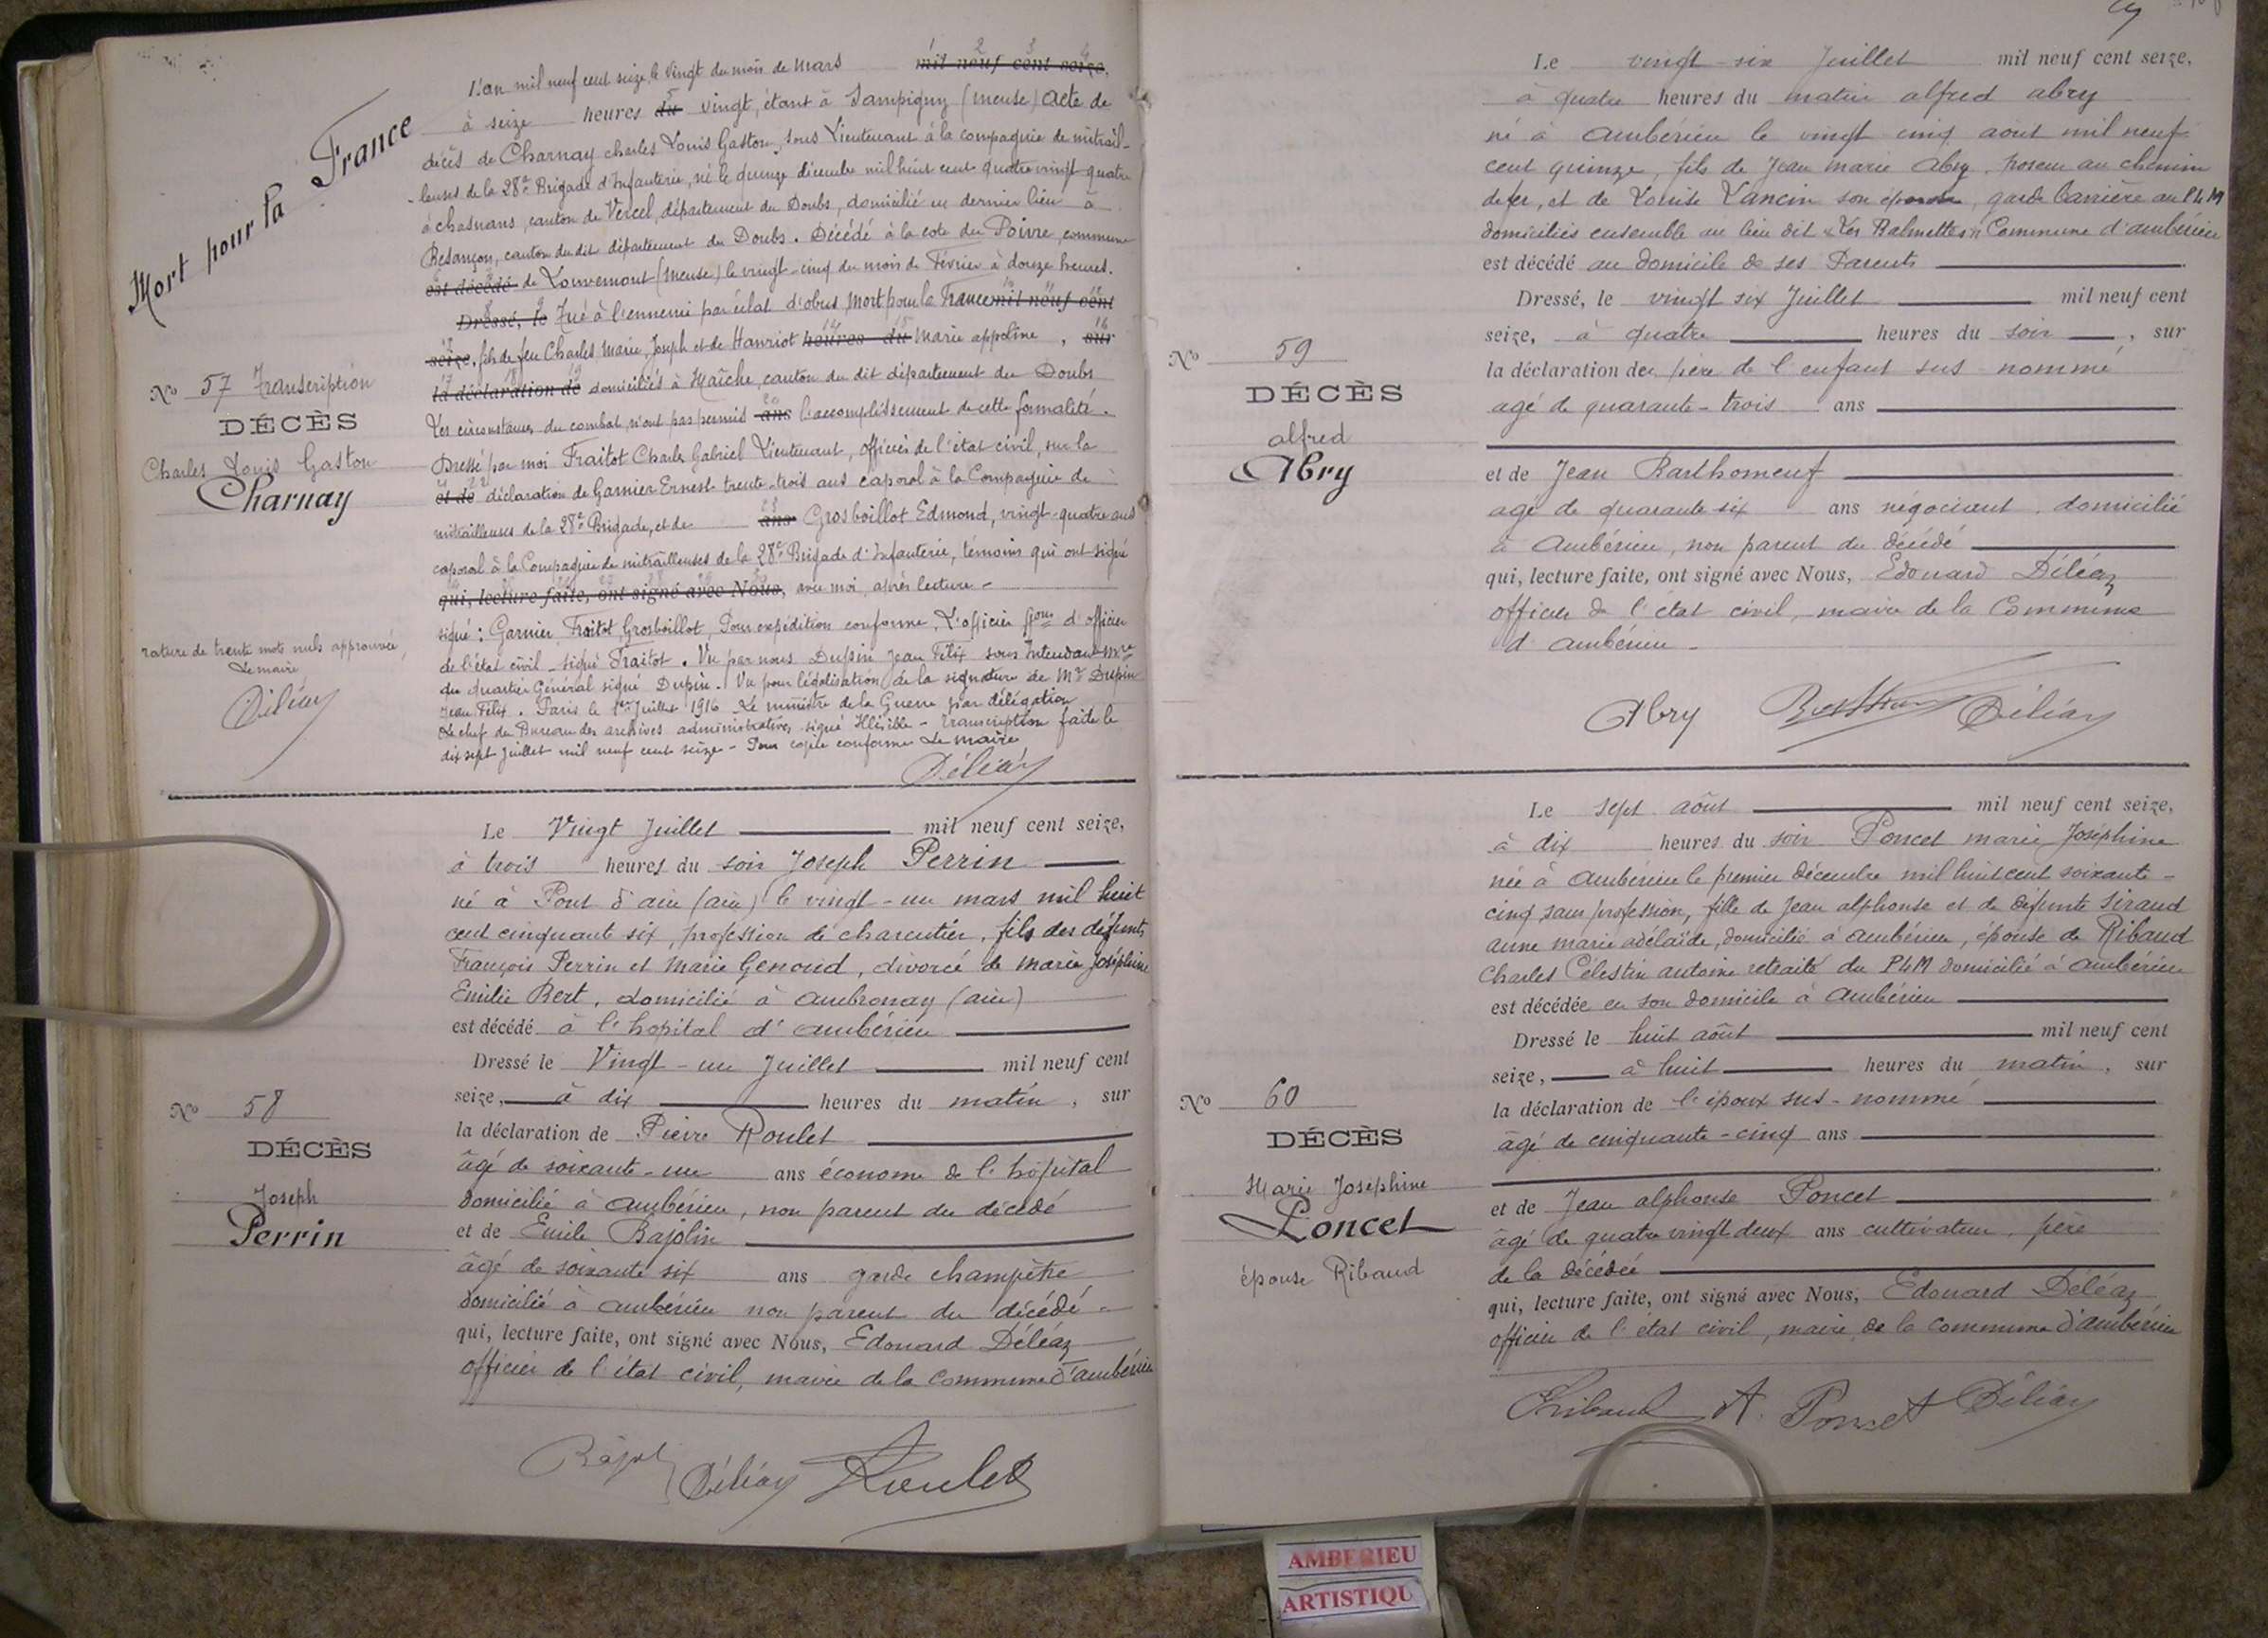 Mort pour la France
L'an mil neuf cent seize, le vingt du mois de Mars mil neuf cent seize,
à seize heures du vingt, étant à Sampigny (Meuse) Acte de
décès de Charnay Charles Louis Gaston, sous Lieutenant à la compagnie de mitrail-
-leuses de la 28e Brigade d'Infanterie, né le quinze décembre mil huit cent quatre vingt quatre
à chasnans, canton de Vercel, département du Doubs, domicilié en dernier lieu à
Besançon, canton du dit département du Doubs. Décédé à la cote du Poivre, commune
est décédé de Louvemont (Meuse) le vingt-cinq du mois de Février à douze heures.
Dressé, le Tué à l'ennemi par éclat d'obus, Mort pour la France mil neuf cent
seize, fils de feu Charles Marie, Joseph et de Hanriot heures du Marie appoline, sur
la déclaration de domiciliés à Maîche, canton du dit département du Doubs
Les circonstances du combat n'ont pas permis ans l'accomplissement de cette formalité.
Dressé par moi Fraitot Charles Gabriel Lieutenant, officier de l'état civil, sur la
et de déclaration de Garnier Ernest trente-trois ans caporal à la Compagnie de
mitrailleuses de la 28e Brigade, et de ans Grosboillot Edmond, vingt-quatre ans
caporal à la Compagnie de mitrailleuses de la 28e Brigade d'Infanterie, témoins qui ont signé
qui, lecture faite, ont signé avec Nous, avec moi, après lecture -
signé : Garnier, Fraitot Grosboillot, Pour expédition conforme, L'officier fons d'officier
de l'état civil - signé Fraitot. Vu par nous Dupin Jean Félix sous Intendant Mre
du quartier Général signé Dupin. Vu pour légalisation de la signature de Mr Dupin
Jean Félix. Paris le 1er Juillet 1916 Le ministre de la Guerre par délégation
Le chef du Bureau des archives administratives, signé Illisible - Transcription faite le
dix sept Juillet mil neuf cent seize - Pour copie conforme Le maire
Déléaz
No 57 Transcription
DÉCÈS
Charles Louis Gaston
Charnay
rature de trente mots nuls approuvée,
Le maire
Déléaz
Le Vingt Juillet mil neuf cent seize,
à trois heures du soir Joseph Perrin
né à Pont d'ain (ain) le vingt-un mars mil huit
cent cinquante six, profession de charcutier, fils des défunts
François Perrin et Marie Genoud, divorcé de Marie Joséphine
Emilie Bert, domicilié à Ambronay (ain)
est décédé à l'hopital d'ambérieu
Dressé le Vingt-un Juillet mil neuf cent
seize, à dix heures du matin, sur
la déclaration de Pierre Roulet
âgé de soixante-un ans économe de l'hôpital
domicilié à Ambérieu, non parent du décédé
et de Emile Bajolin
âgé de soixante six ans garde champêtre
domicilié à ambérieu non parent du décédé.
qui, lecture faite, ont signé avec Nous, Edouard Déléaz
officier de l'état civil, maire de la Commune d'ambérieu
No 58
DÉCÈS
Joseph
Perrin
Déléaz Roulet
Le vingt-six Juillet mil neuf cent seize,
à quatre heures du matin alfred abry
né à Ambérieu le vingt cinq aout mil neuf
cent quinze, fils de Jean Marie Abry, poseur au chemin
de fer, et de Louise Lancin son épouse, garde barrière au PLM
domiciliés ensemble au lieu dit "Les Balmettes" Commune d'ambérieu
est décédé au domicile de ses Parents
Dressé, le vingt six Juillet mil neuf cent
seize, à quatre heures du soir, sur
la déclaration du père de l'enfant sus nommé
agé de quarante-trois ans
et de Jean Barthomeuf
agé de quarante-six ans négociant, domicilié
à Ambérieu, non parent du décédé
qui, lecture faite, ont signé avec Nous, Edouard Déléaz
officier de l'état civil, maire de la Commune
d'ambérieu -
No 59
DÉCÈS
alfred
Abry
Abry Déléaz
Le sept août mil neuf cent seize,
à dix heures du soir Poncet Marie Joséphine
née à Ambérieu le premier décembre mil huit cent soixante-
cinq sans profession, fille de Jean alphonse et de défunte Siraud
anne marie adélaïde, domicilié à ambérieu, épouse de Ribaud
Charles Célestin antoine retraité du PLM domicilié à Ambérieu
est décédée en son domicile à Ambérieu
Dressé le huit août mil neuf cent
seize, à huit heures du matin, sur
la déclaration de l'époux sus-nommé
âgé de cinquante-cinq ans
et de Jean alphonse Poncet
âgé de quatre vingt deux ans cultivateur, père
de la décédée
qui, lecture faite, ont signé avec Nous, Edouard Déléaz
officier de l'état civil, maire de la commune d'ambérieu
No 60
DÉCÈS
Marie Joséphine
Poncet
épouse Ribaud
A. Poncet Déléaz
AMBERIEU
ARTISTIQU